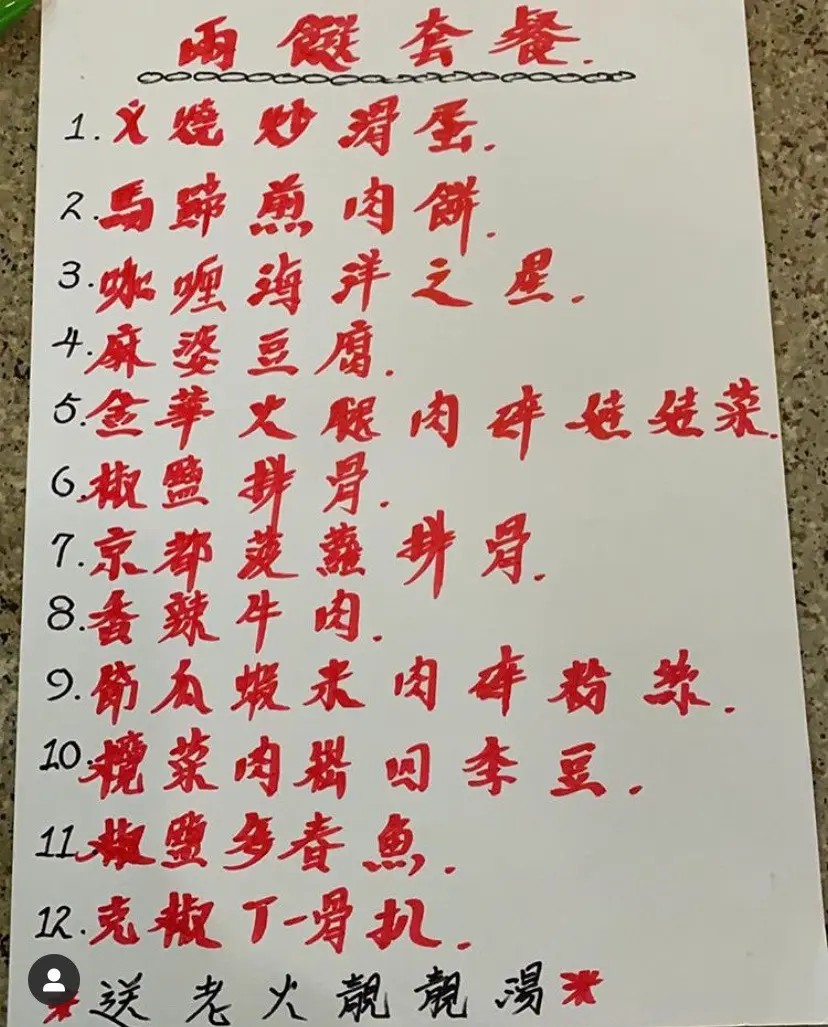 兩餸套餐.
1.乂燒炒滑蛋.
2.馬蹄煎肉餅.
3.咖喱海洋之星.
4.麻婆豆腐.
5.金華火腿肉碎娃娃菜.
6.椒鹽排骨.
7.京都菠蘿排骨.
8.香辣牛肉.
9.節瓜蝦米肉碎粉絲.
10.欖菜肉崧四季豆.
11.椒鹽多春魚.
12.克椒丁-骨扒.
*送老火靚靚湯*